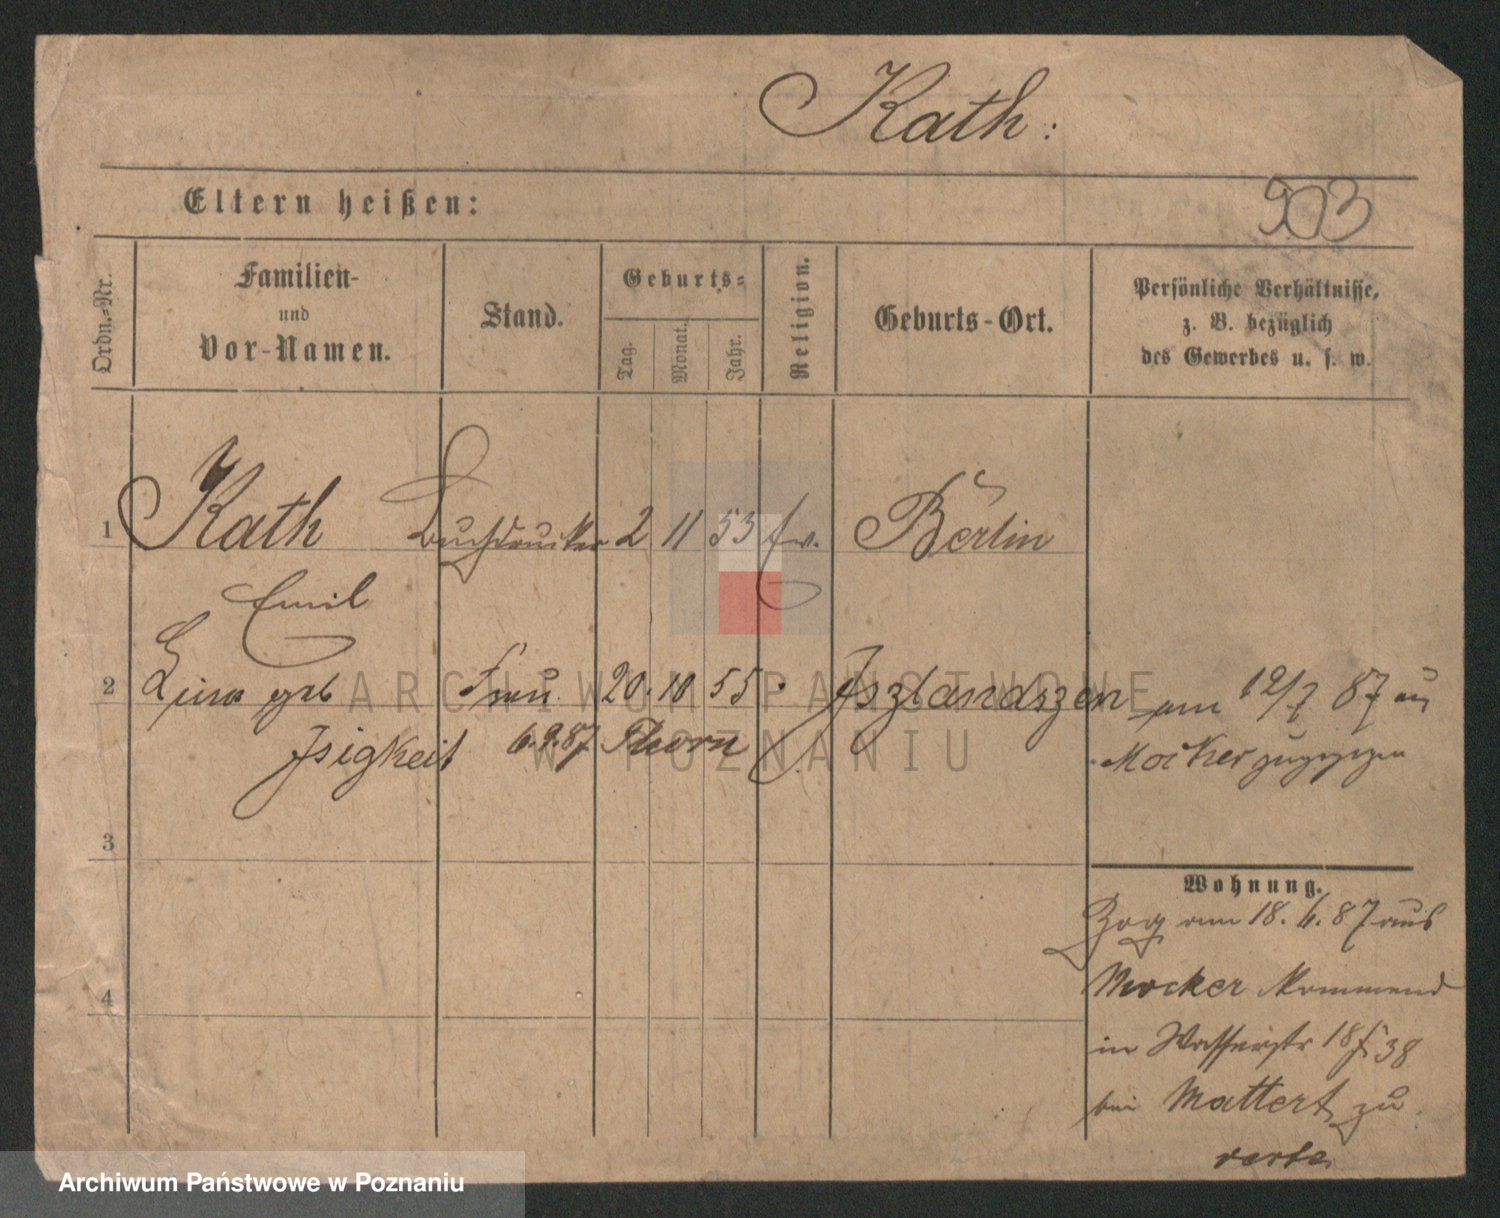 Kath:
Eltern heißen:
903
Ordn.-Nr.
Familien-
und
Vor-Namen.
Stand.
Geburts-
Tag.
Monat.
Jahr.
Religion.
Geburts-Ort.
Persönliche Verhältnisse,
z. B. bezüglich
des Gewerbes u. s. w.
1 Kath Buchdrucker 2 11 53 Berlin
Emil
2 Lina geb Frau 20. 10 55 Iszlandszen am 12/7 87 aus
Isigkeit 6.9.87 Thorn Mocker zugezogen
3
Wohnung.
Zog am 18. 6. 87 aus
4
Mocker kommend
in Wasserstr
bei Mattert zu
verte
ARCHIWUM PAŃSTWOWE
W POZNANIU
Archiwum Państwowe w Poznaniu